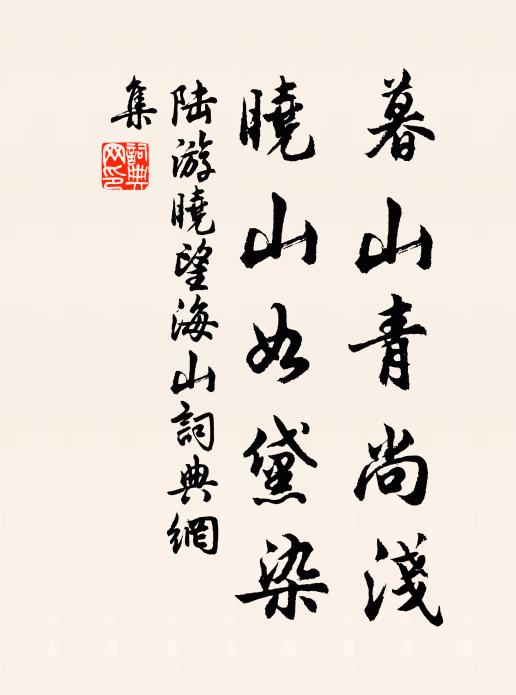 暮山青尚淺
曉山如黛染
陸游曉望海山詞典網
集
詞典網印